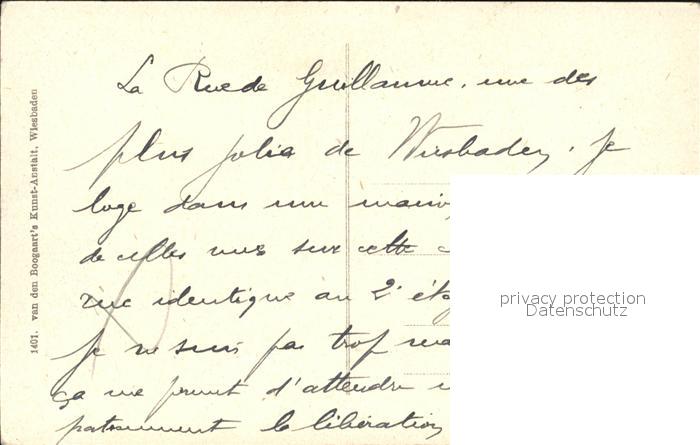 La Rue de Guillaume, une des
plus jolies de Wiesbaden. Je
loge dans une maison
de celles vues sur cette
rue identique au 2e
Je ne suis pas trop
ça me permet d'attendre
patiemment la libération
1401. van den Boogaart's Kunst-Anstalt, Wiesbaden
privacy protection
Datenschutz